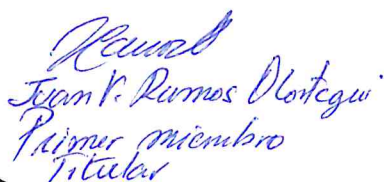 Juan V. Ramos Olortegui
Primer miembro
Titular